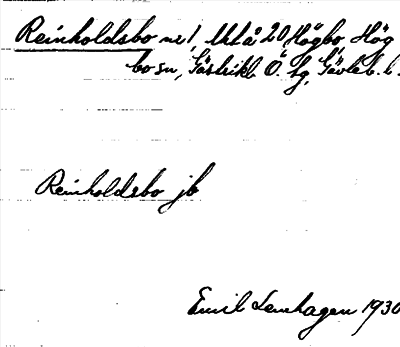 Reinholdsbo nr 1, Utå 20 Högbo, Hög
bo sn, Gästrikl. Ö. tg, Gävleb. l.
Reinholdsbo jb
Emil Lenhagen 1930